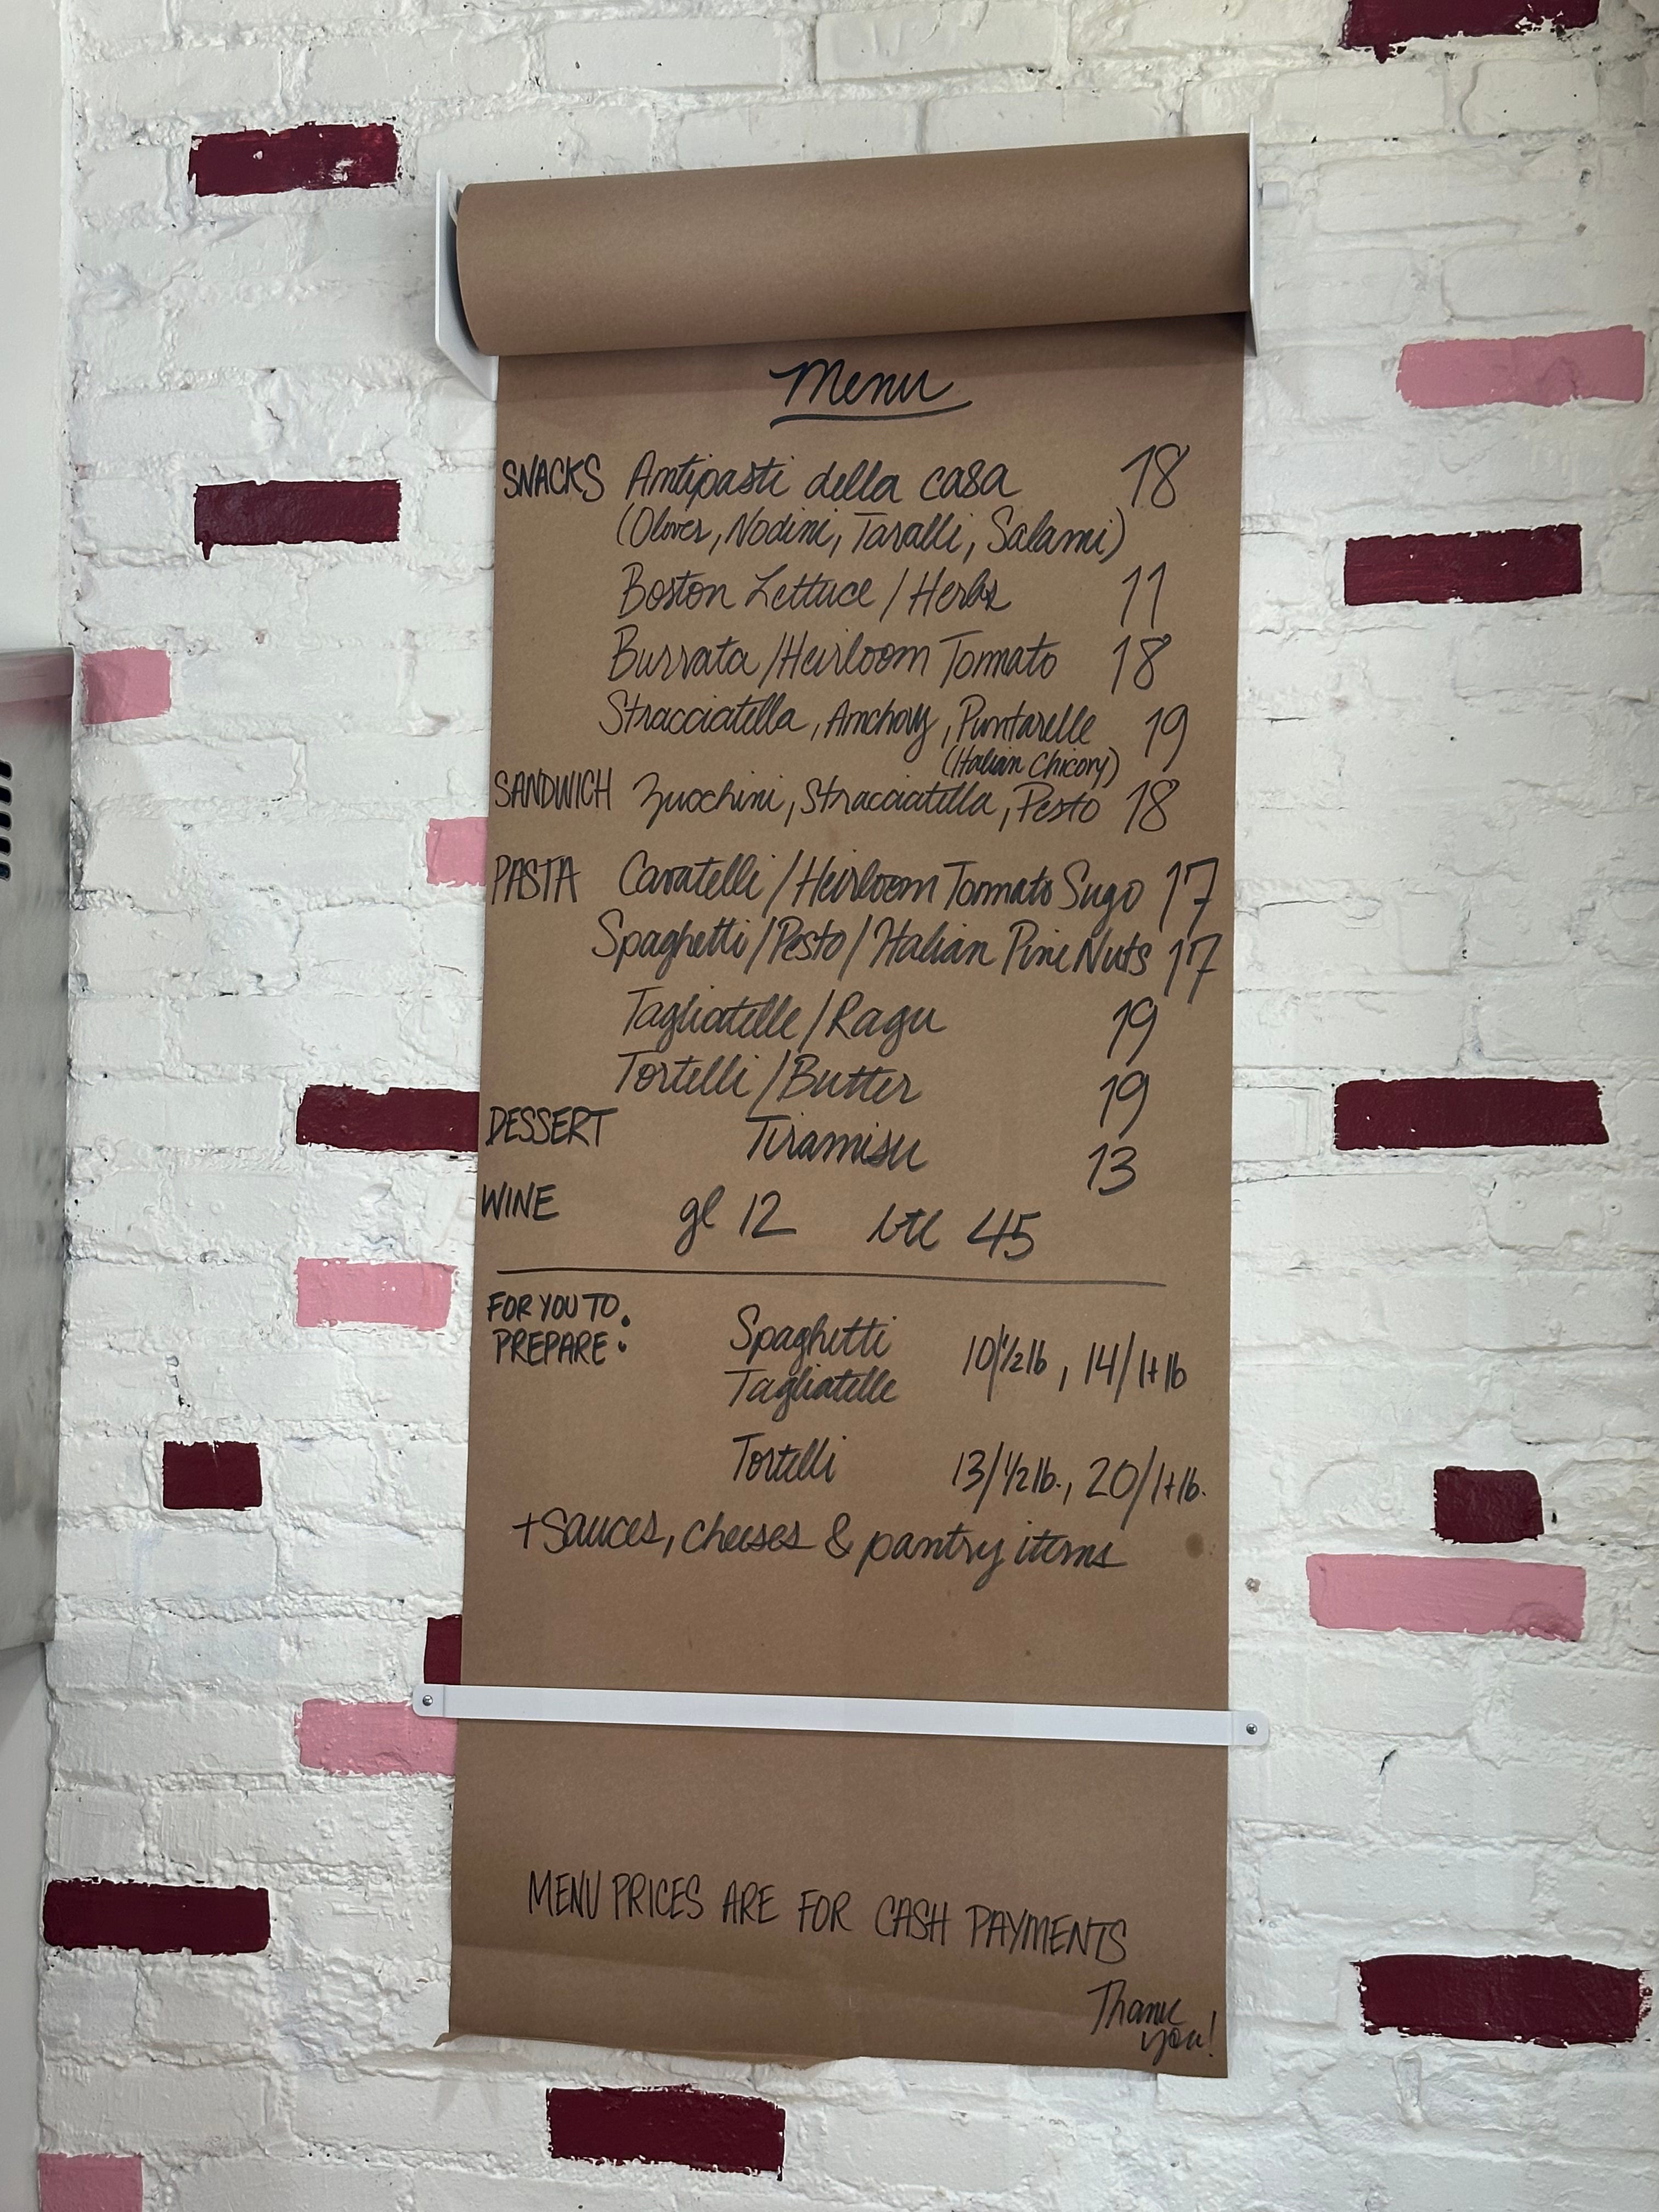 Menu
SNACKS Antipasti della casa 18
(Olives, Nodini, Taralli, Salami)
Boston Lettuce / Herbs 11
Burrata / Heirloom Tomato 18
Stracciatella, Anchovy, Puntarelle 19
(Italian Chicory)
SANDWICH Zucchini, Stracciatella, Pesto 18
PASTA Cavatelli / Heirloom Tomato Sugo 17
Spaghetti / Pesto / Italian Pine Nuts 17
Tagliatelle / Ragu 19
Tortelli / Butter 19
DESSERT Tiramisu 13
WINE gl 12 btl 45
FOR YOU TO
PREPARE:
Spaghetti
Tagliatelle 10/½ lb, 14/1+ lb
Tortelli 13/½ lb., 20/1+ lb.
+ Sauces, cheeses & pantry items
MENU PRICES ARE FOR CASH PAYMENTS
Thank
you!